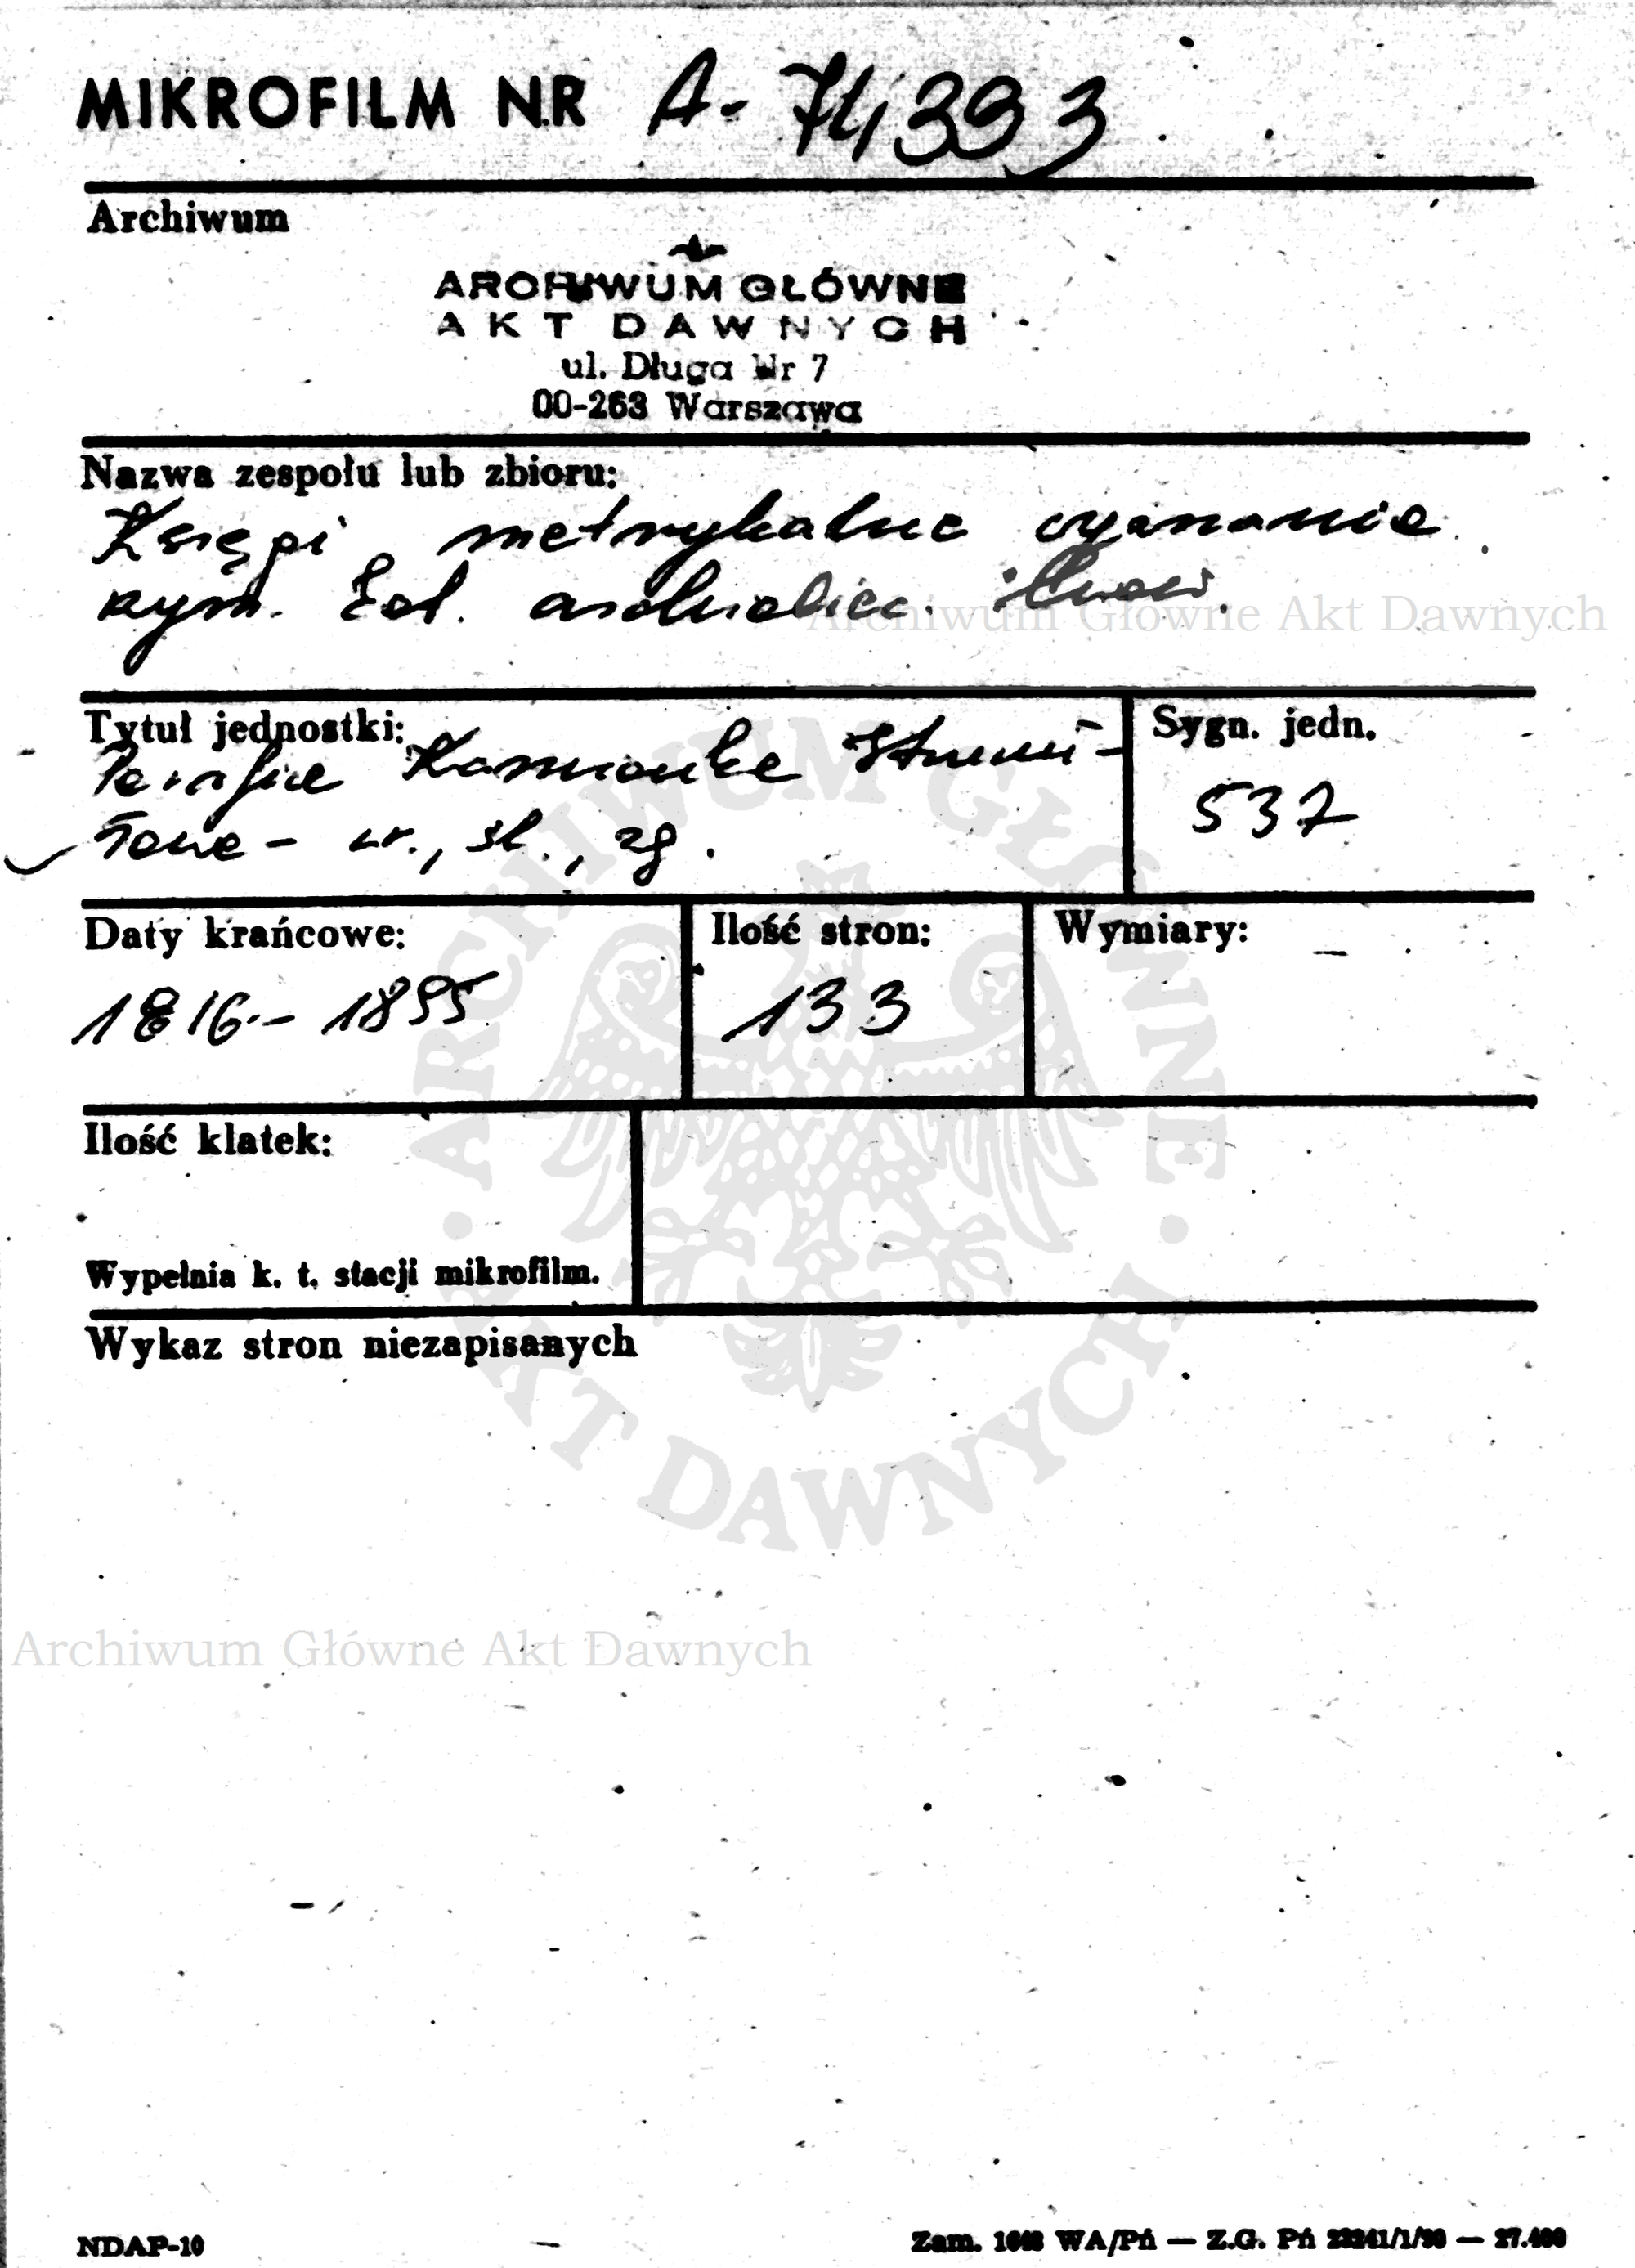 MIKROFILM NR A-74393
Archiwum
ARCHIWUM GŁÓWNE
AKT DAWNYCH
ul. Długa Nr 7
00-263 Warszawa
Nazwa zespołu lub zbioru:
Księgi metrykalne wyznania
rzym. kat. archidiec. lwow.
Archiwum Główne Akt Dawnych
Tytuł jednostki:
Parafia Kamionka Strumi-
łowa - ur., śl., zg.
Sygn. jedn.
537
Daty krańcowe:
1816 - 1855
Ilość stron:
133
Wymiary:
Ilość klatek:
Wypełnia k. t. stacji mikrofilm.
Wykaz stron niezapisanych
ARCHIWUM GŁÓWNE · AKT DAWNYCH ·
Archiwum Główne Akt Dawnych
NDAP-10
Zam. WA/Pń — Z.G. Pń — 27.400